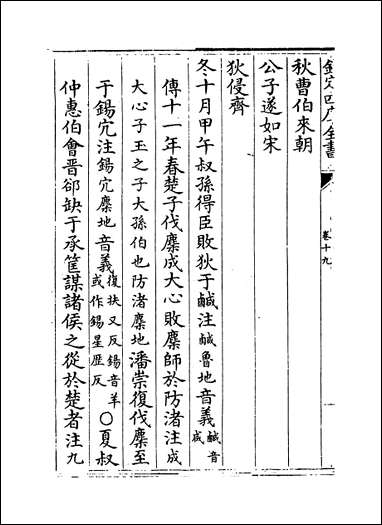 欽定四庫全書
卷十九
秋曹伯來朝
公子遂如宋
狄侵齊
冬十月甲午叔孫得臣敗狄于鹹注鹹魯地音義鹹音咸
傳十一年春楚子伐麇成大心敗麇師於防渚注成
大心子玉之子大孫伯也防渚麇地潘崇復伐麇至
于錫穴注錫穴麇地音義復扶又反錫音羊或作錫星歴反○夏叔
仲惠伯會晉郤缺于承筐謀諸侯之從於楚者注九